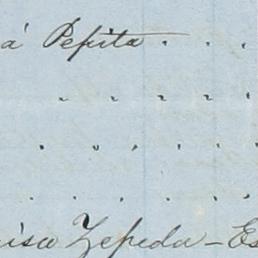 á Pepita . . .
. . . .
. . . . .
. . . . .
isca Zepeda - Es